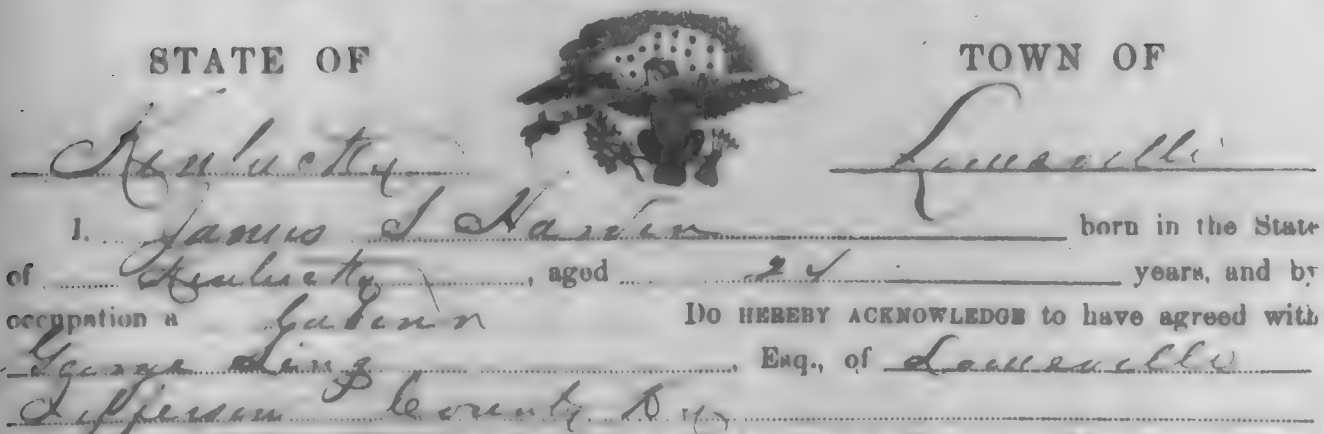 STATE OF
TOWN OF
Kentucky
Louisville
I. James S Harden born in the State
of Kentucky, aged years, and by
occupation a Do HEREBY ACKNOWLEDGE to have agreed with
George, Esq., of Louisville
Jefferson County Ky